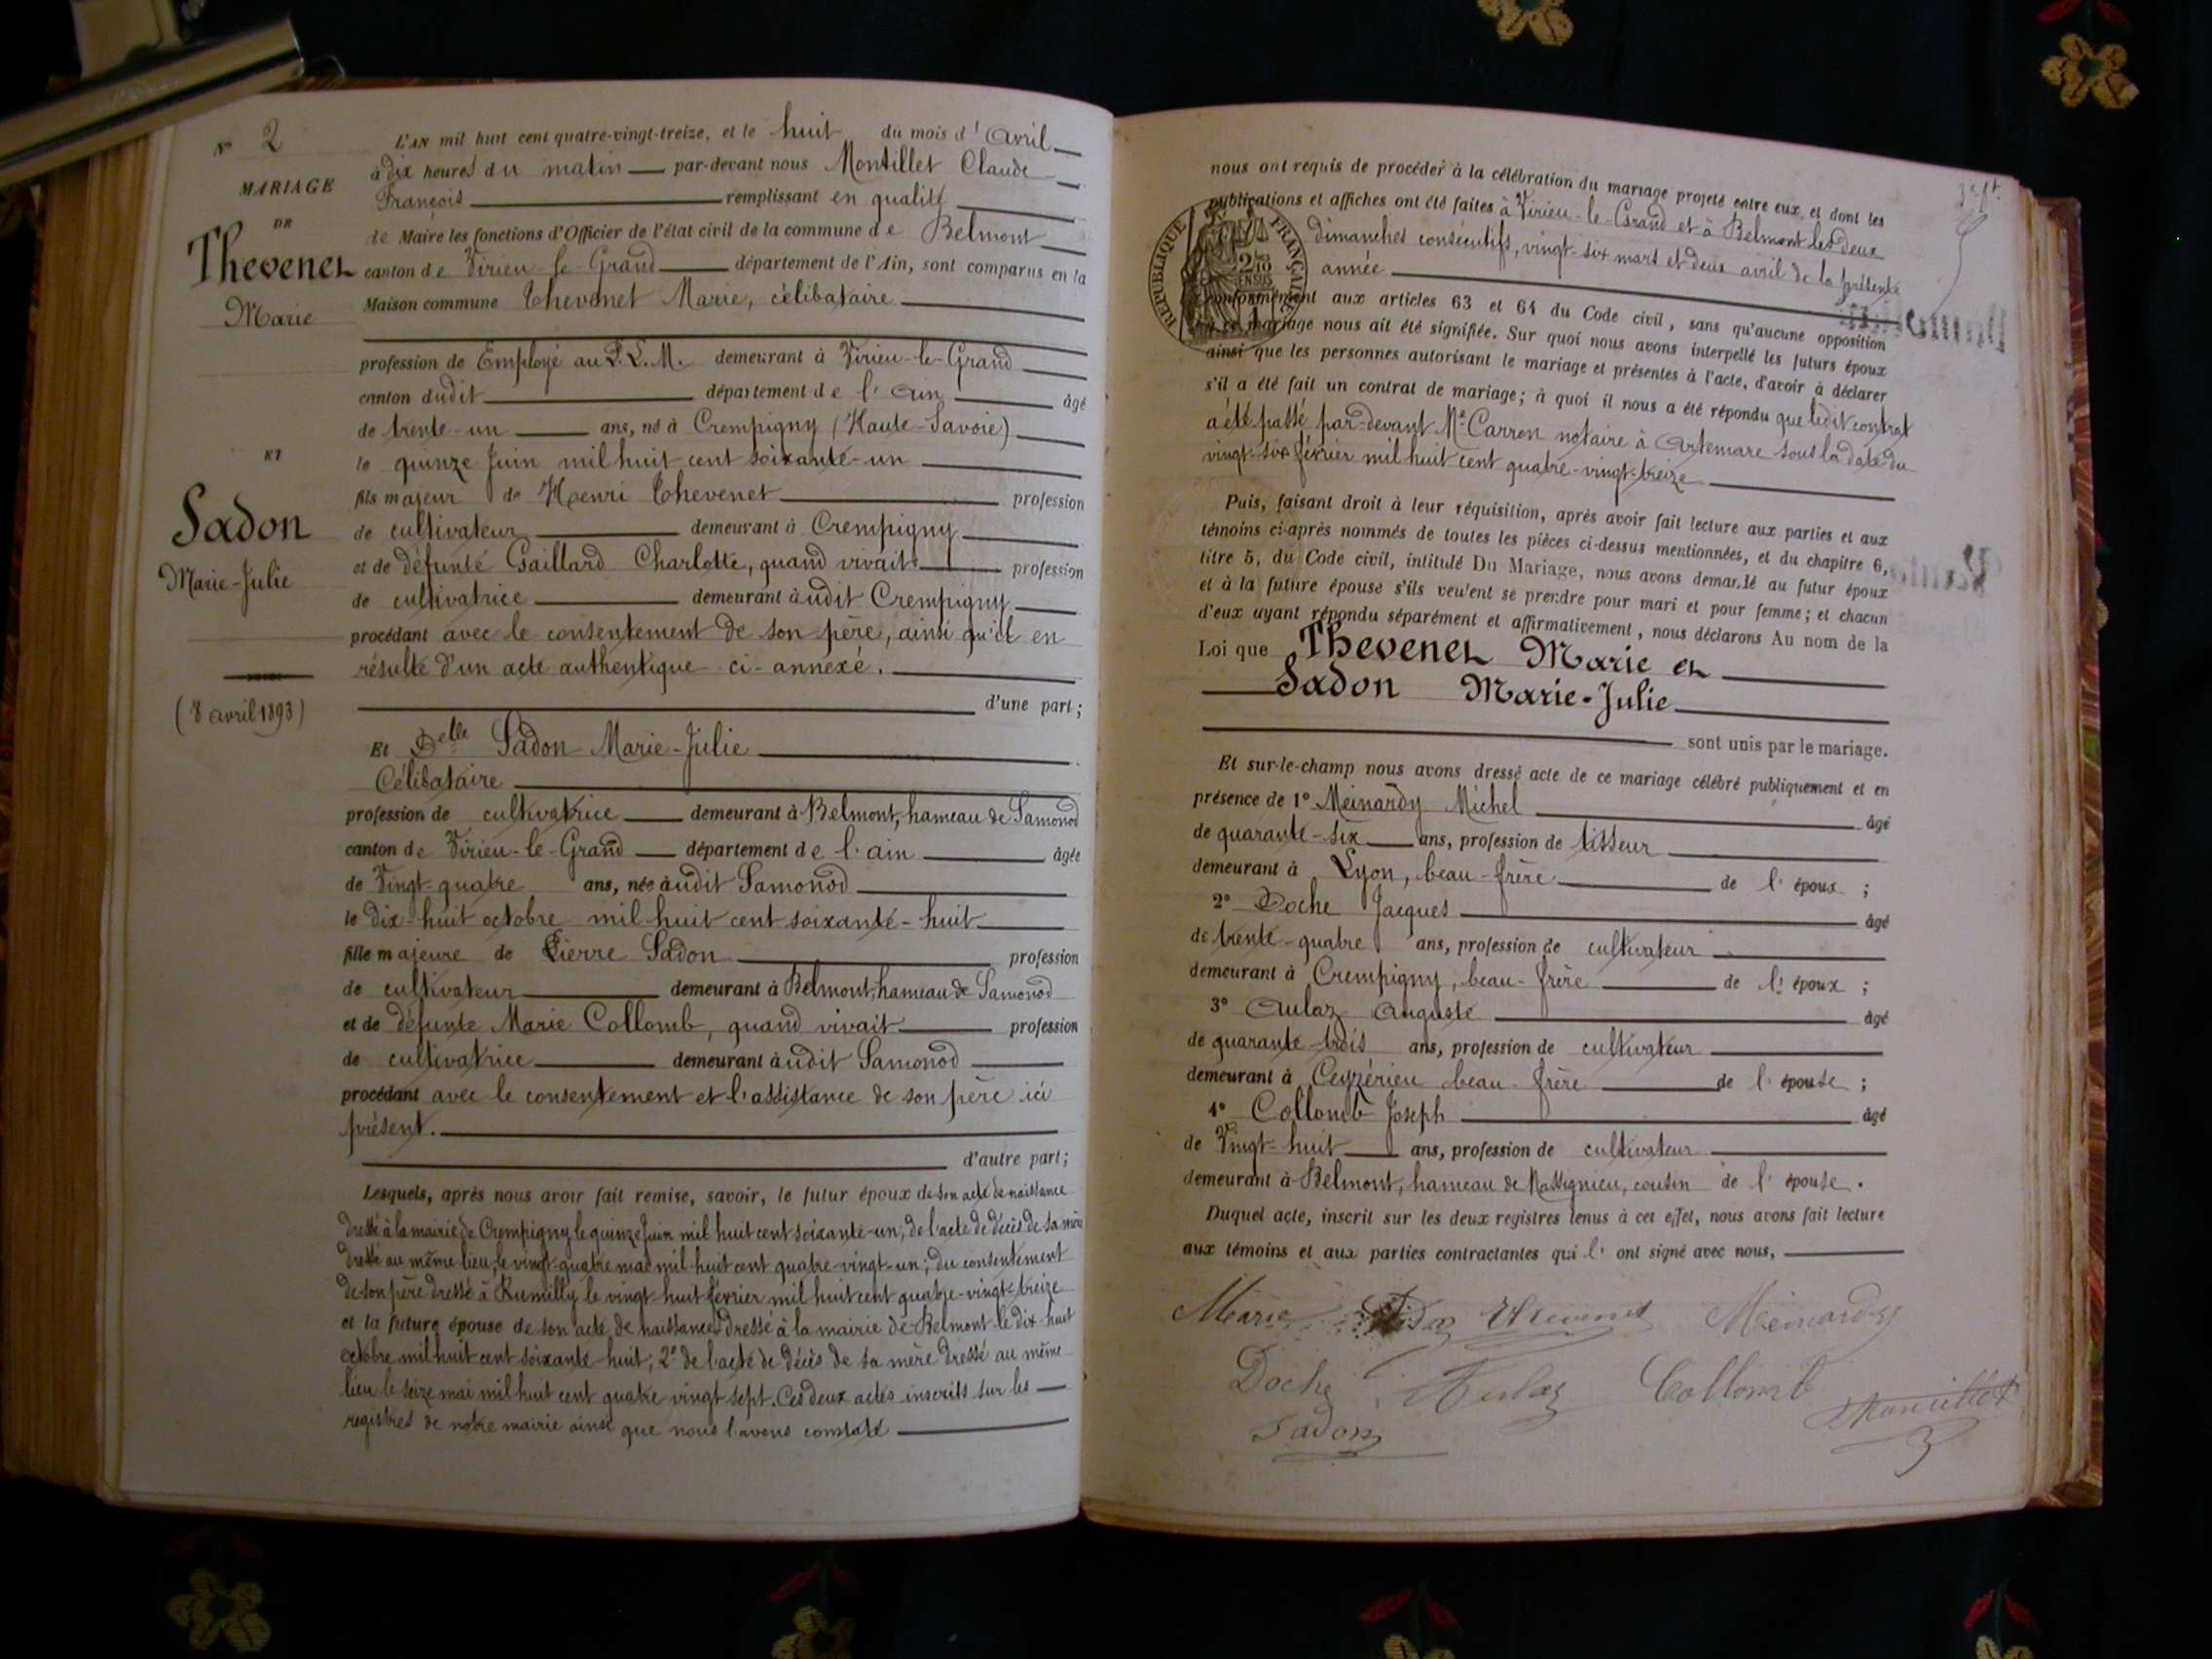 N° 2
MARIAGE
DE
Thevenet
Marie
ET
Sadon
Marie-Julie
(8 avril 1893)
L'AN mil huit cent quatre-vingt-treize, et le huit du mois d'avril
à dix heures du matin par-devant nous Montillet Claude
François remplissant en qualité
de Maire les fonctions d'Officier de l'état civil de la commune de Belmont
canton de Virieu-le-Grand département de l'Ain, sont comparus en la
Maison commune Thevenet Marie, célibataire
profession de Employé au P.L.M. demeurant à Virieu-le-Grand
canton dudit département de l'ain âgé
de trente-un ans, né à Crempigny (Haute-Savoie)
le quinze Juin mil huit cent soixante-un
fils majeur de Henri Thevenet profession
de cultivateur demeurant à Crempigny
et de défunte Gaillard Charlotte, quand vivait profession
de cultivatrice demeurant àudit Crempigny
procédant avec le consentement de son père, ainsi qu'il en
résulte d'un acte authentique ci-annexé.
d'une part;
Et Delle Sadon Marie-Julie
Célibataire
profession de cultivatrice demeurant à Belmont, hameau de Samonod
canton de Virieu-le-Grand département de l'ain âgée
de Vingt-quatre ans, née àudit Samonod
le dix-huit octobre mil huit cent soixante-huit
fille majeure de Pierre Sadon profession
de cultivateur demeurant à Belmont, hameau de Samonod
et de défunte Marie Collomb, quand vivait profession
de cultivatrice demeurant àudit Samonod
procédant avec le consentement et l'assistance de son père ici
présent.
d'autre part;
Lesquels, après nous avoir fait remise, savoir, le futur époux de son acte de naissance
dressé à la mairie de Crempigny le quinze Juin mil huit cent soixante-un; de l'acte de décès de sa mère
dressé au même lieu, le vingt-quatre mai mil huit cent quatre-vingt-un; du consentement
de son père dressé à Rumilly le vingt-huit février mil huit cent quatre-vingt-treize
et la future épouse de son acte de naissance dressé à la mairie de Belmont le dix-huit
octobre mil huit cent soixante-huit; 2° de l'acte de décès de sa mère dressé au même
lieu le seize mai mil huit cent quatre vingt sept. Ces deux actes inscrits sur les
registres de notre mairie ainsi que nous l'avons constaté
nous ont requis de procéder à la célébration du mariage projeté entre eux, et dont les
publications et affiches ont été faites à Virieu-le-Grand et à Belmont les deux
dimanches consécutifs, vingt-six mars et deux avril de la présente
année
RÉPUBLIQUE FRANÇAISE
conformément aux articles 63 et 64 du Code civil, sans qu'aucune opposition
à ce mariage nous ait été signifiée. Sur quoi nous avons interpellé les futurs époux
ainsi que les personnes autorisant le mariage et présentes à l'acte, d'avoir à déclarer
s'il a été fait un contrat de mariage; à quoi il nous a été répondu que ledit contrat
a été passé par-devant Me Carron notaire à Artemare sous la date du
vingt-six février mil huit cent quatre-vingt-treize
Puis, faisant droit à leur réquisition, après avoir fait lecture aux parties et aux
témoins ci-après nommés de toutes les pièces ci-dessus mentionnées, et du chapitre 6,
titre 5, du Code civil, intitulé Du Mariage, nous avons demandé au futur époux
et à la future épouse s'ils veulent se prendre pour mari et pour femme; et chacun
d'eux ayant répondu séparément et affirmativement, nous déclarons Au nom de la
Loi que Thevenet Marie et
Sadon Marie-Julie
sont unis par le mariage.
Et sur-le-champ nous avons dressé acte de ce mariage célébré publiquement et en
présence de 1° Meinardy Michel âgé
de quarante-six ans, profession de tisseur
demeurant à Lyon, beau-frère de l'époux;
2° Doche Jacques âgé
de trente-quatre ans, profession de cultivateur
demeurant à Crempigny, beau-frère de l'époux;
3° Aulaz Auguste âgé
de quarante-trois ans, profession de cultivateur
demeurant à Ceyzérieu beau-frère de l'épouse;
4° Collomb Joseph âgé
de Vingt-huit ans, profession de cultivateur
demeurant à Belmont, hameau de Massignieu, cousin de l'épouse.
Duquel acte, inscrit sur les deux registres tenus à cet effet, nous avons fait lecture
aux témoins et aux parties contractantes qui l'ont signé avec nous,
Marie Thevenet Meinardy
Doche Aulaz Collomb Montillet
Sadon